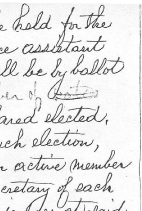 e held for the
ce assistant
ll be by ballot
er of
ared elected,
ch election,
n active member
cretary of each